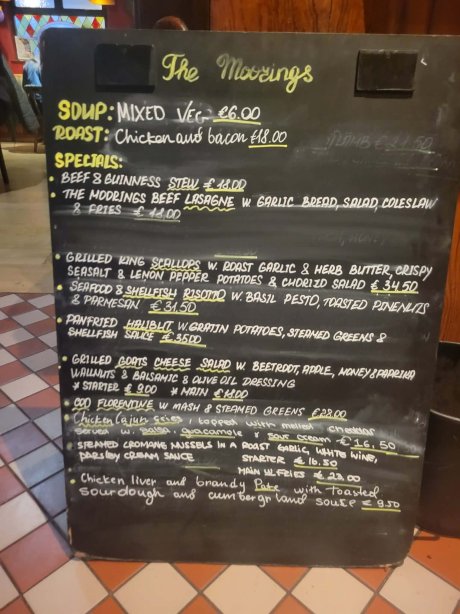 The Moorings
SOUP: MIXED VEG €6.00
ROAST: Chicken and bacon €18.00
SPECIALS:
• BEEF & GUINNESS STEW € 18.00
• THE MOORINGS BEEF LASAGNE W. GARLIC BREAD, SALAD, COLESLAW
& FRIES € 18.00
• GRILLED KING SCALLOPS W. ROAST GARLIC & HERB BUTTER, CRISPY
SEASALT & LEMON PEPPER POTATOES & CHORIZO SALAD € 34.50
• SEAFOOD & SHELLFISH RISOTTO W. BASIL PESTO, TOASTED PINENUTS
& PARMESAN € 31.50
• PANFRIED HALIBUT W. GRATIN POTATOES, STEAMED GREENS &
SHELLFISH SAUCE € 35.00
• GRILLED GOATS CHEESE SALAD W. BEETROOT, APPLE, HONEY & PAPRIKA
WALNUTS & BALSAMIC & OLIVE OIL DRESSING
* STARTER € 9.00 * MAIN € 18.00
• COD FLORENTINE W MASH & STEAMED GREENS €28.00
• Chicken Cajun, topped with melted cheddar
served w. salsa, guacamole & sour cream € 16.50
• STEAMED CROMANE MUSSELS IN A ROAST GARLIC, WHITE WINE,
PARSLEY CREAM SAUCE STARTER € 16.50
MAIN W. FRIES € 23.00
• Chicken liver and brandy Pate with toasted
sourdough and cumbergrland souse € 9.50